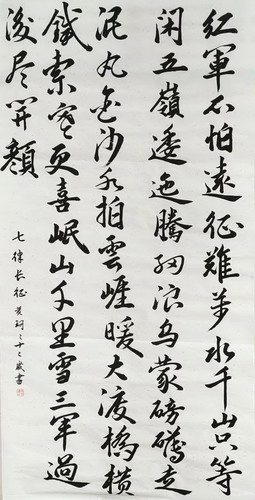 红軍不怕遠征難萬水千山只等
闲五嶺逶迤騰细浪乌蒙磅礴走
泥丸金沙水拍雲崖暖大渡橋横
鐵索寒更喜岷山千里雪三軍過
後尽开顔
七律长征 十二歲書